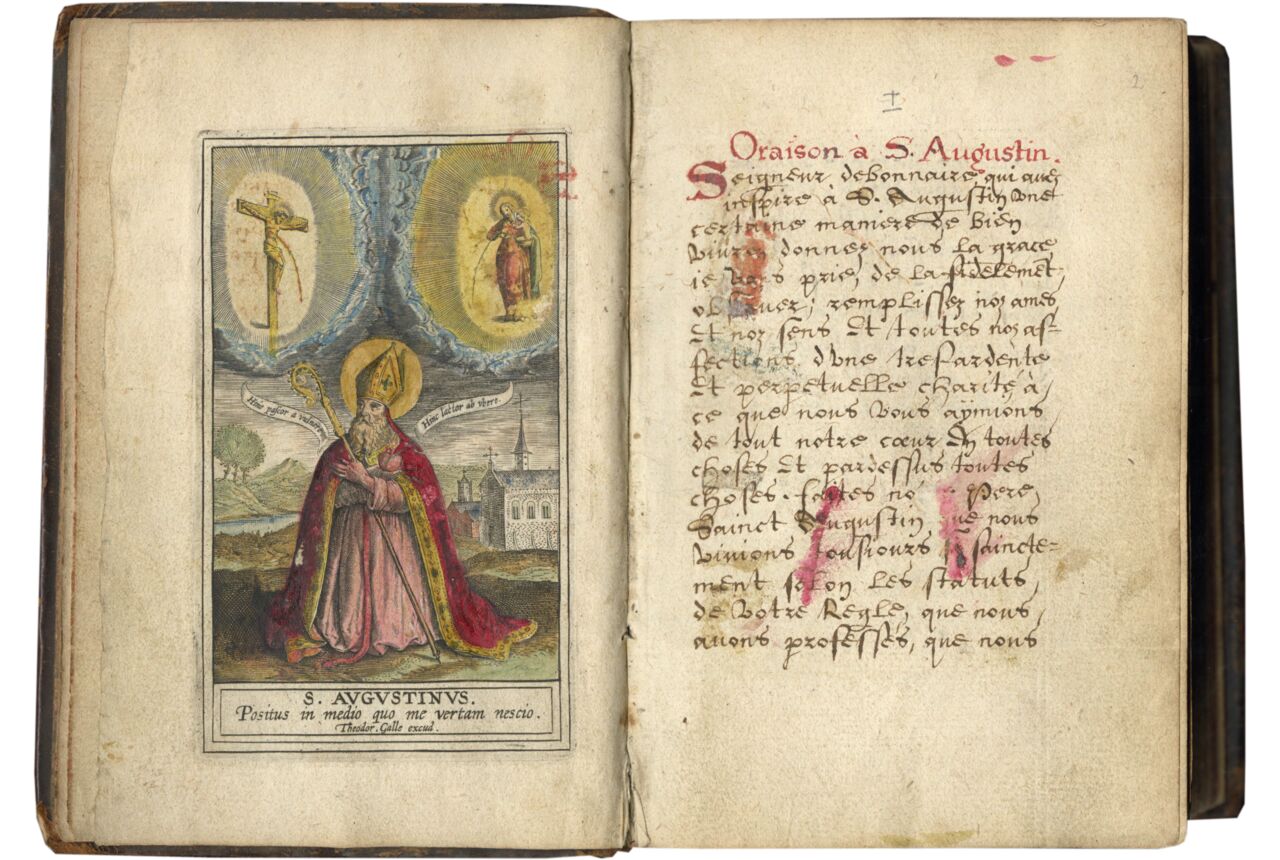 Hinc pascor a vulnere.
Hinc lactor ab vbere.
S. AVGVSTINVS.
Positus in medio quo me vertam nescio.
Theodor. Galle excud.
2
Oraison à S. Augustin.
Seigneur debonnaire qui auez
inspire à S. Augustin vne
certaine maniere de bien
viure, donnez nous la grace
ie vous prie, de la fidelemēt
obseruer, remplissez noz ames
Et noz sens Et toutes noz af-
fections d'vne tresardente
Et perpetuelle charité à
ce que nous vous aymions
de tout notre cœur En toutes
choses Et pardessus toutes
choses. faites Pere
Sainct Augustin, que nous
viuions tousiours saincte-
ment selon les statuts
de votre Regle, que nous
auons professés, que nous